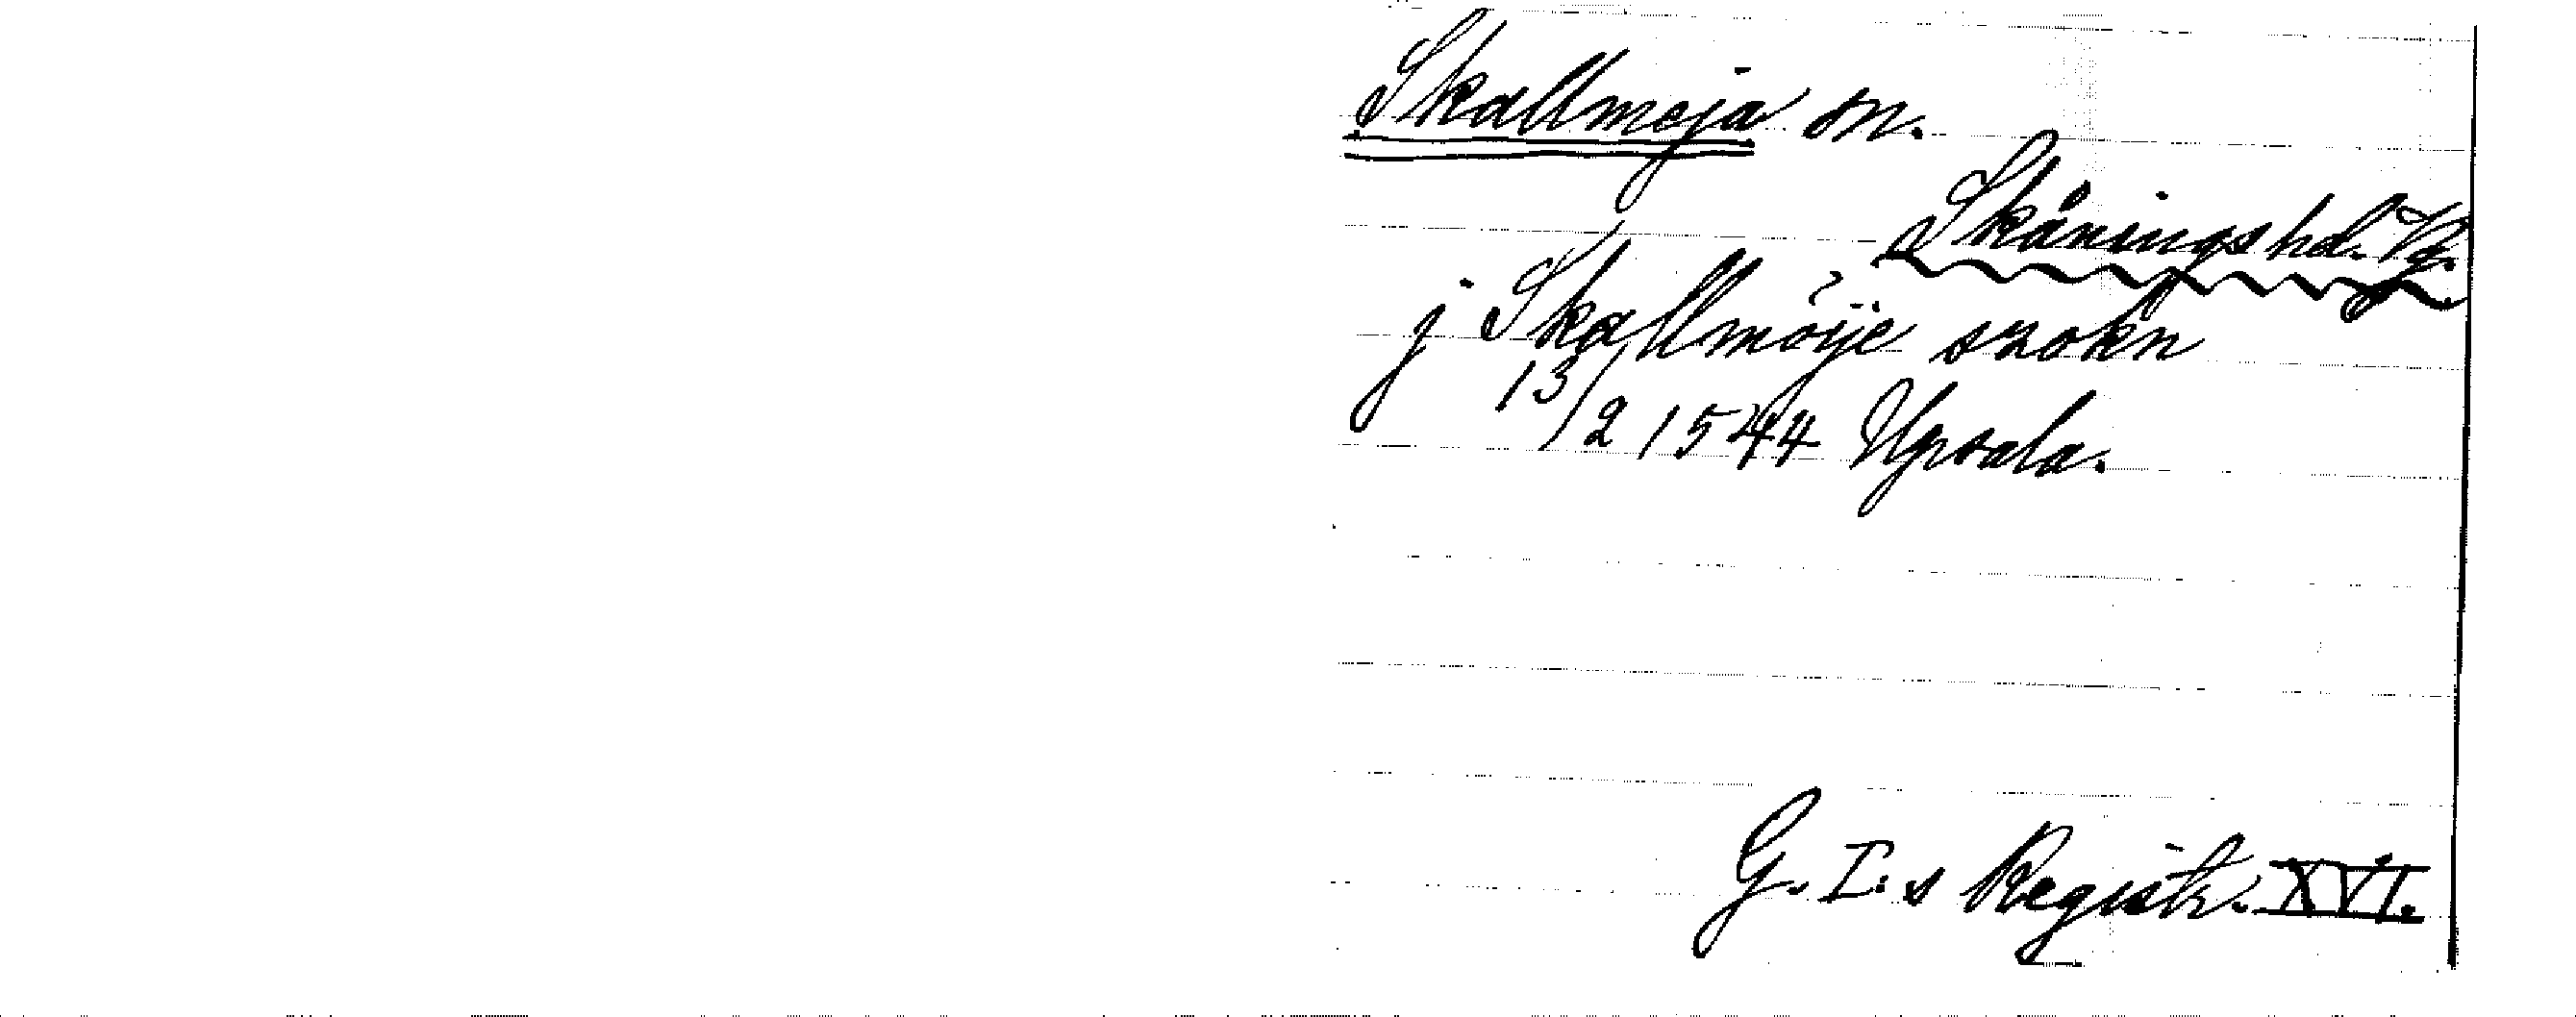 Skallmeja sn.
Skånings hd. Vg.
j Skallmöije szokn
13/2 1544 Upsala.
G. I:s Registr. XVI.